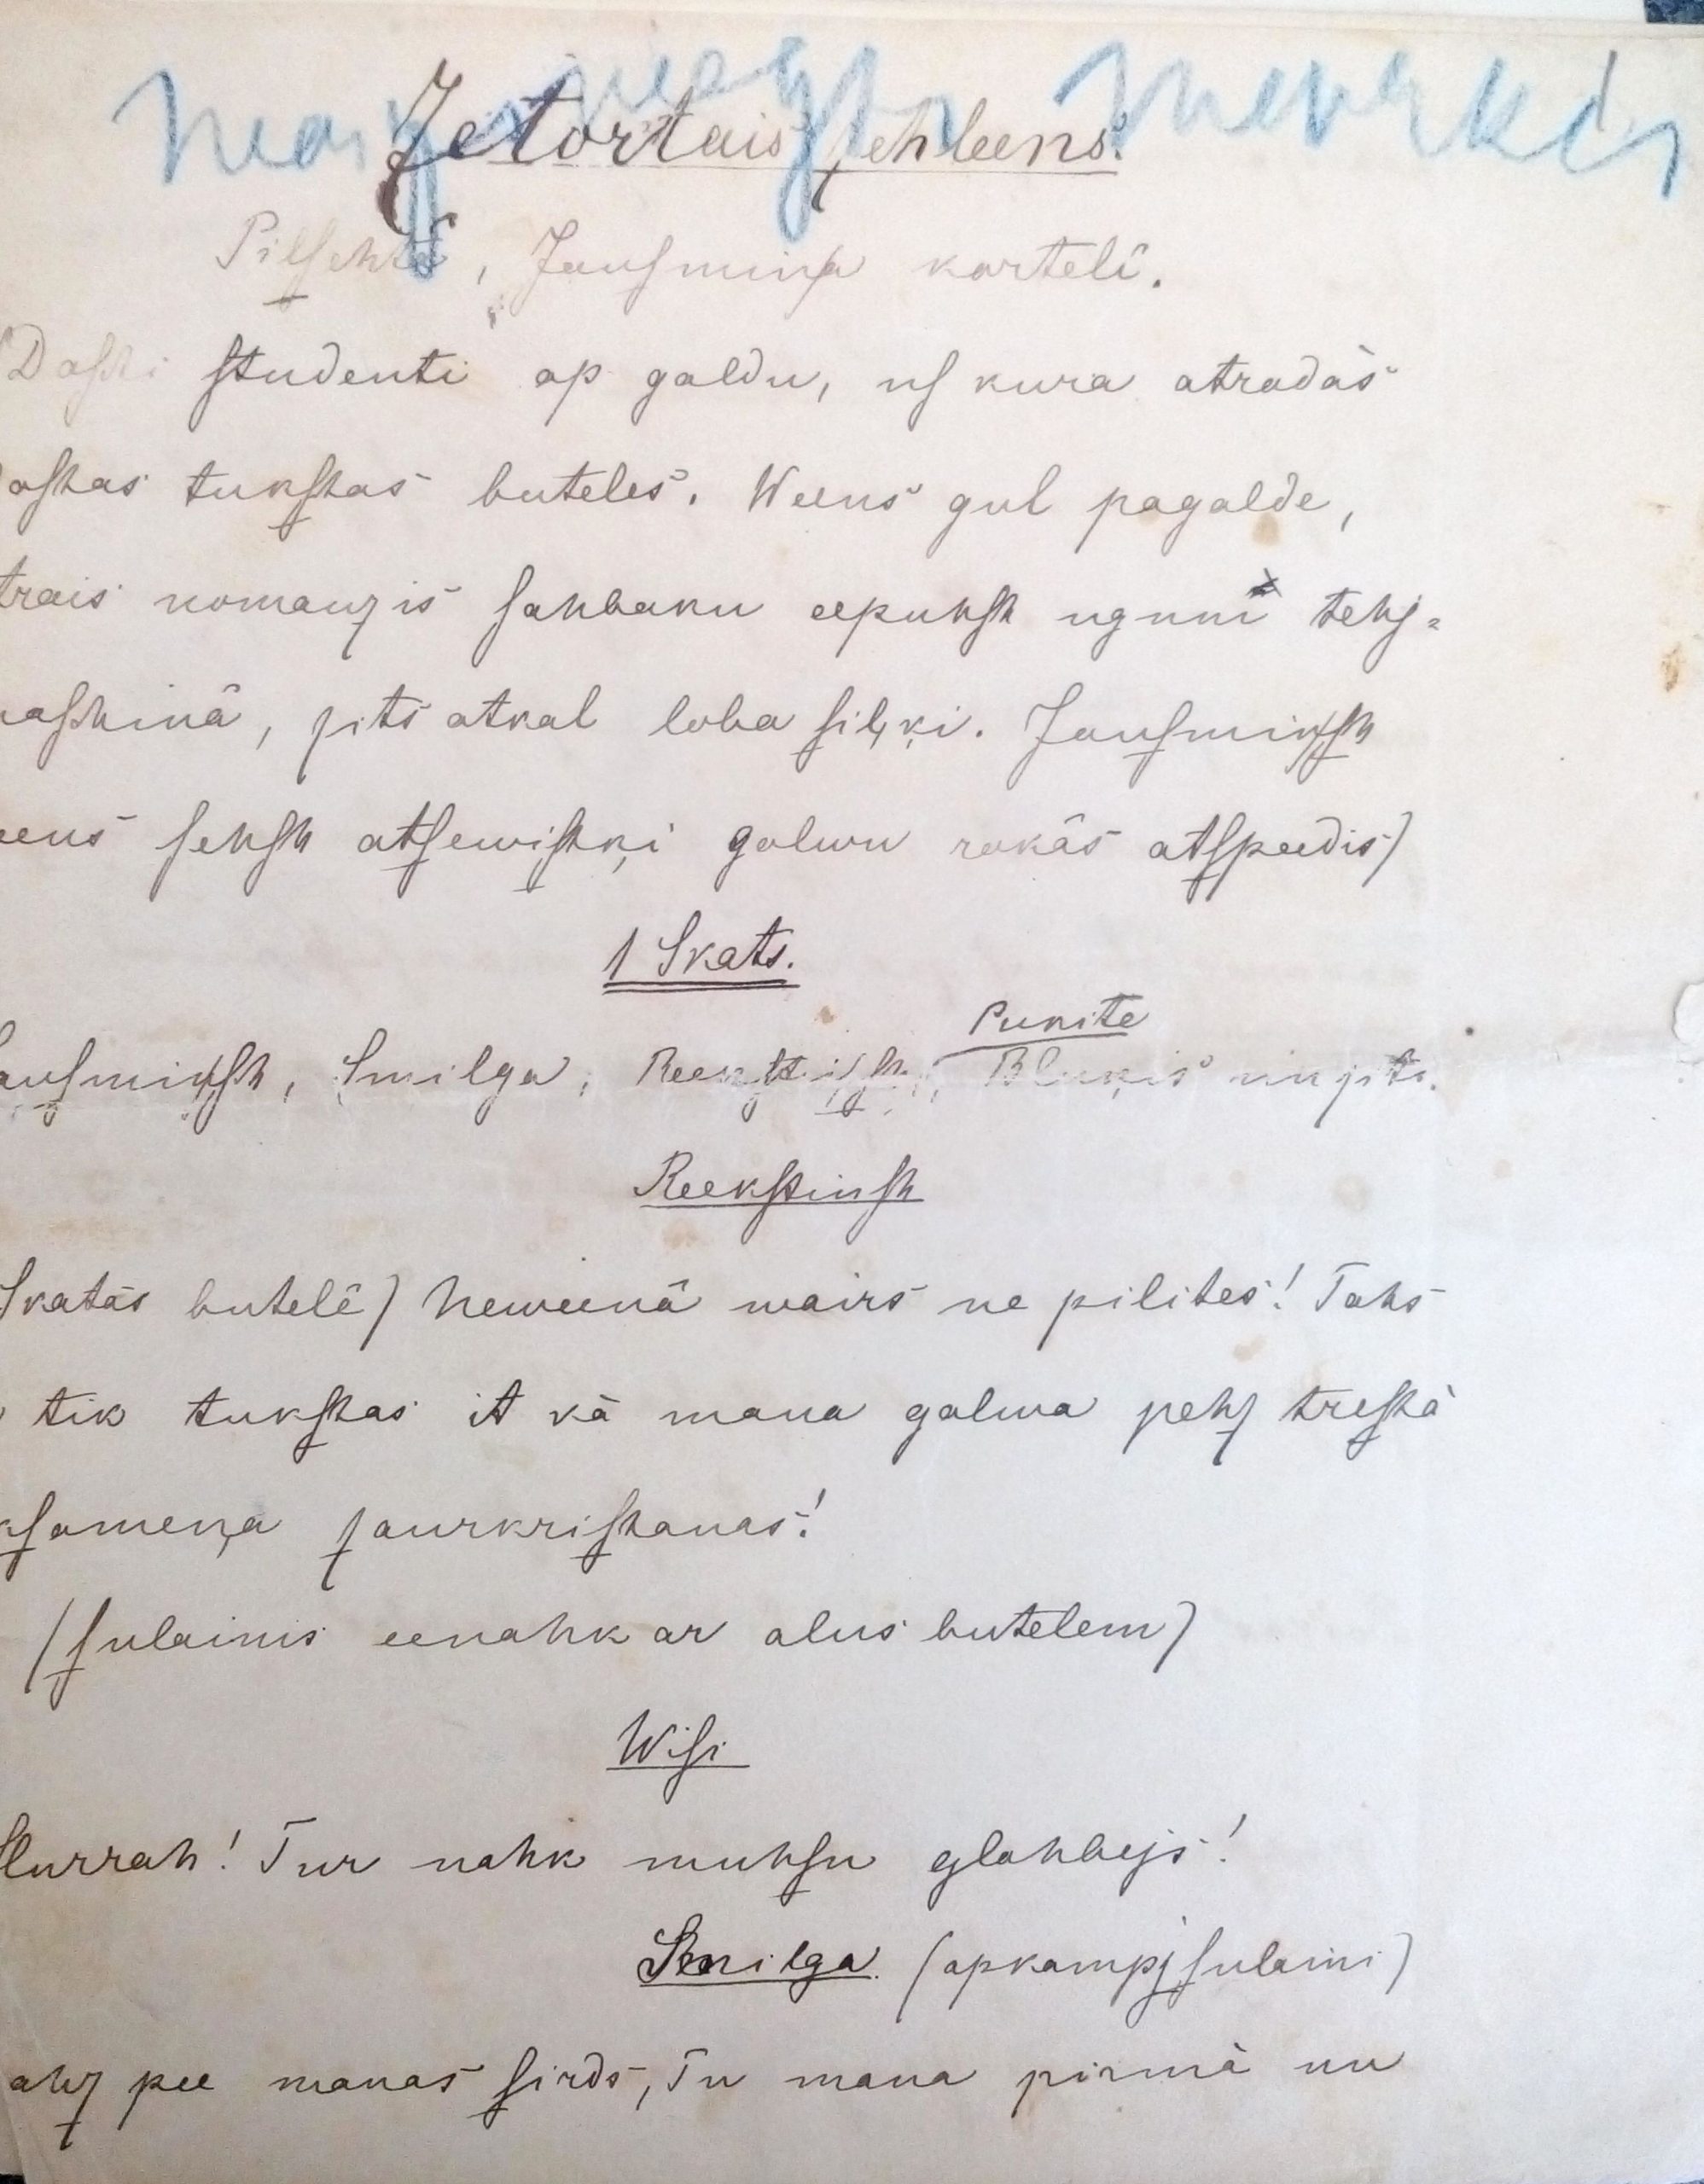 Zetortais zehleens.
Pilſehtā, Jauſmiņa kortelī.
(Daſchi ſtudenti ap galdu, uſ kura atrodās
daſhas tukſhas buteles. Weens gul pagalde,
otrais nomauzis ſahbaku eepuhſh ugnni tehj-
maſhinā, zits atkal loba ſiļķi. Jauſmiņſh
weens ſehſh atſewiſhķi galwu rokās atſpeedis)
1 Skats.
Jauſmiņſh, Smilga, Reekſtiņſh, Blukis un ziti.
Punite
Reekſtinſh
Skatās butelē) Neweenā wairs ne pilites! Tahs
tik tukſhas it kā mana galwa pehz treſhā
ekſameņa zaurkriſhanas!
(ſulainis eenahk ar alus butelem)
Wiſi
Hurrah! Tur nahk muhſu glahbejs!
Smilga (apkampj ſulaini)
nahz pee manas ſirds, Tu mana pirmā un